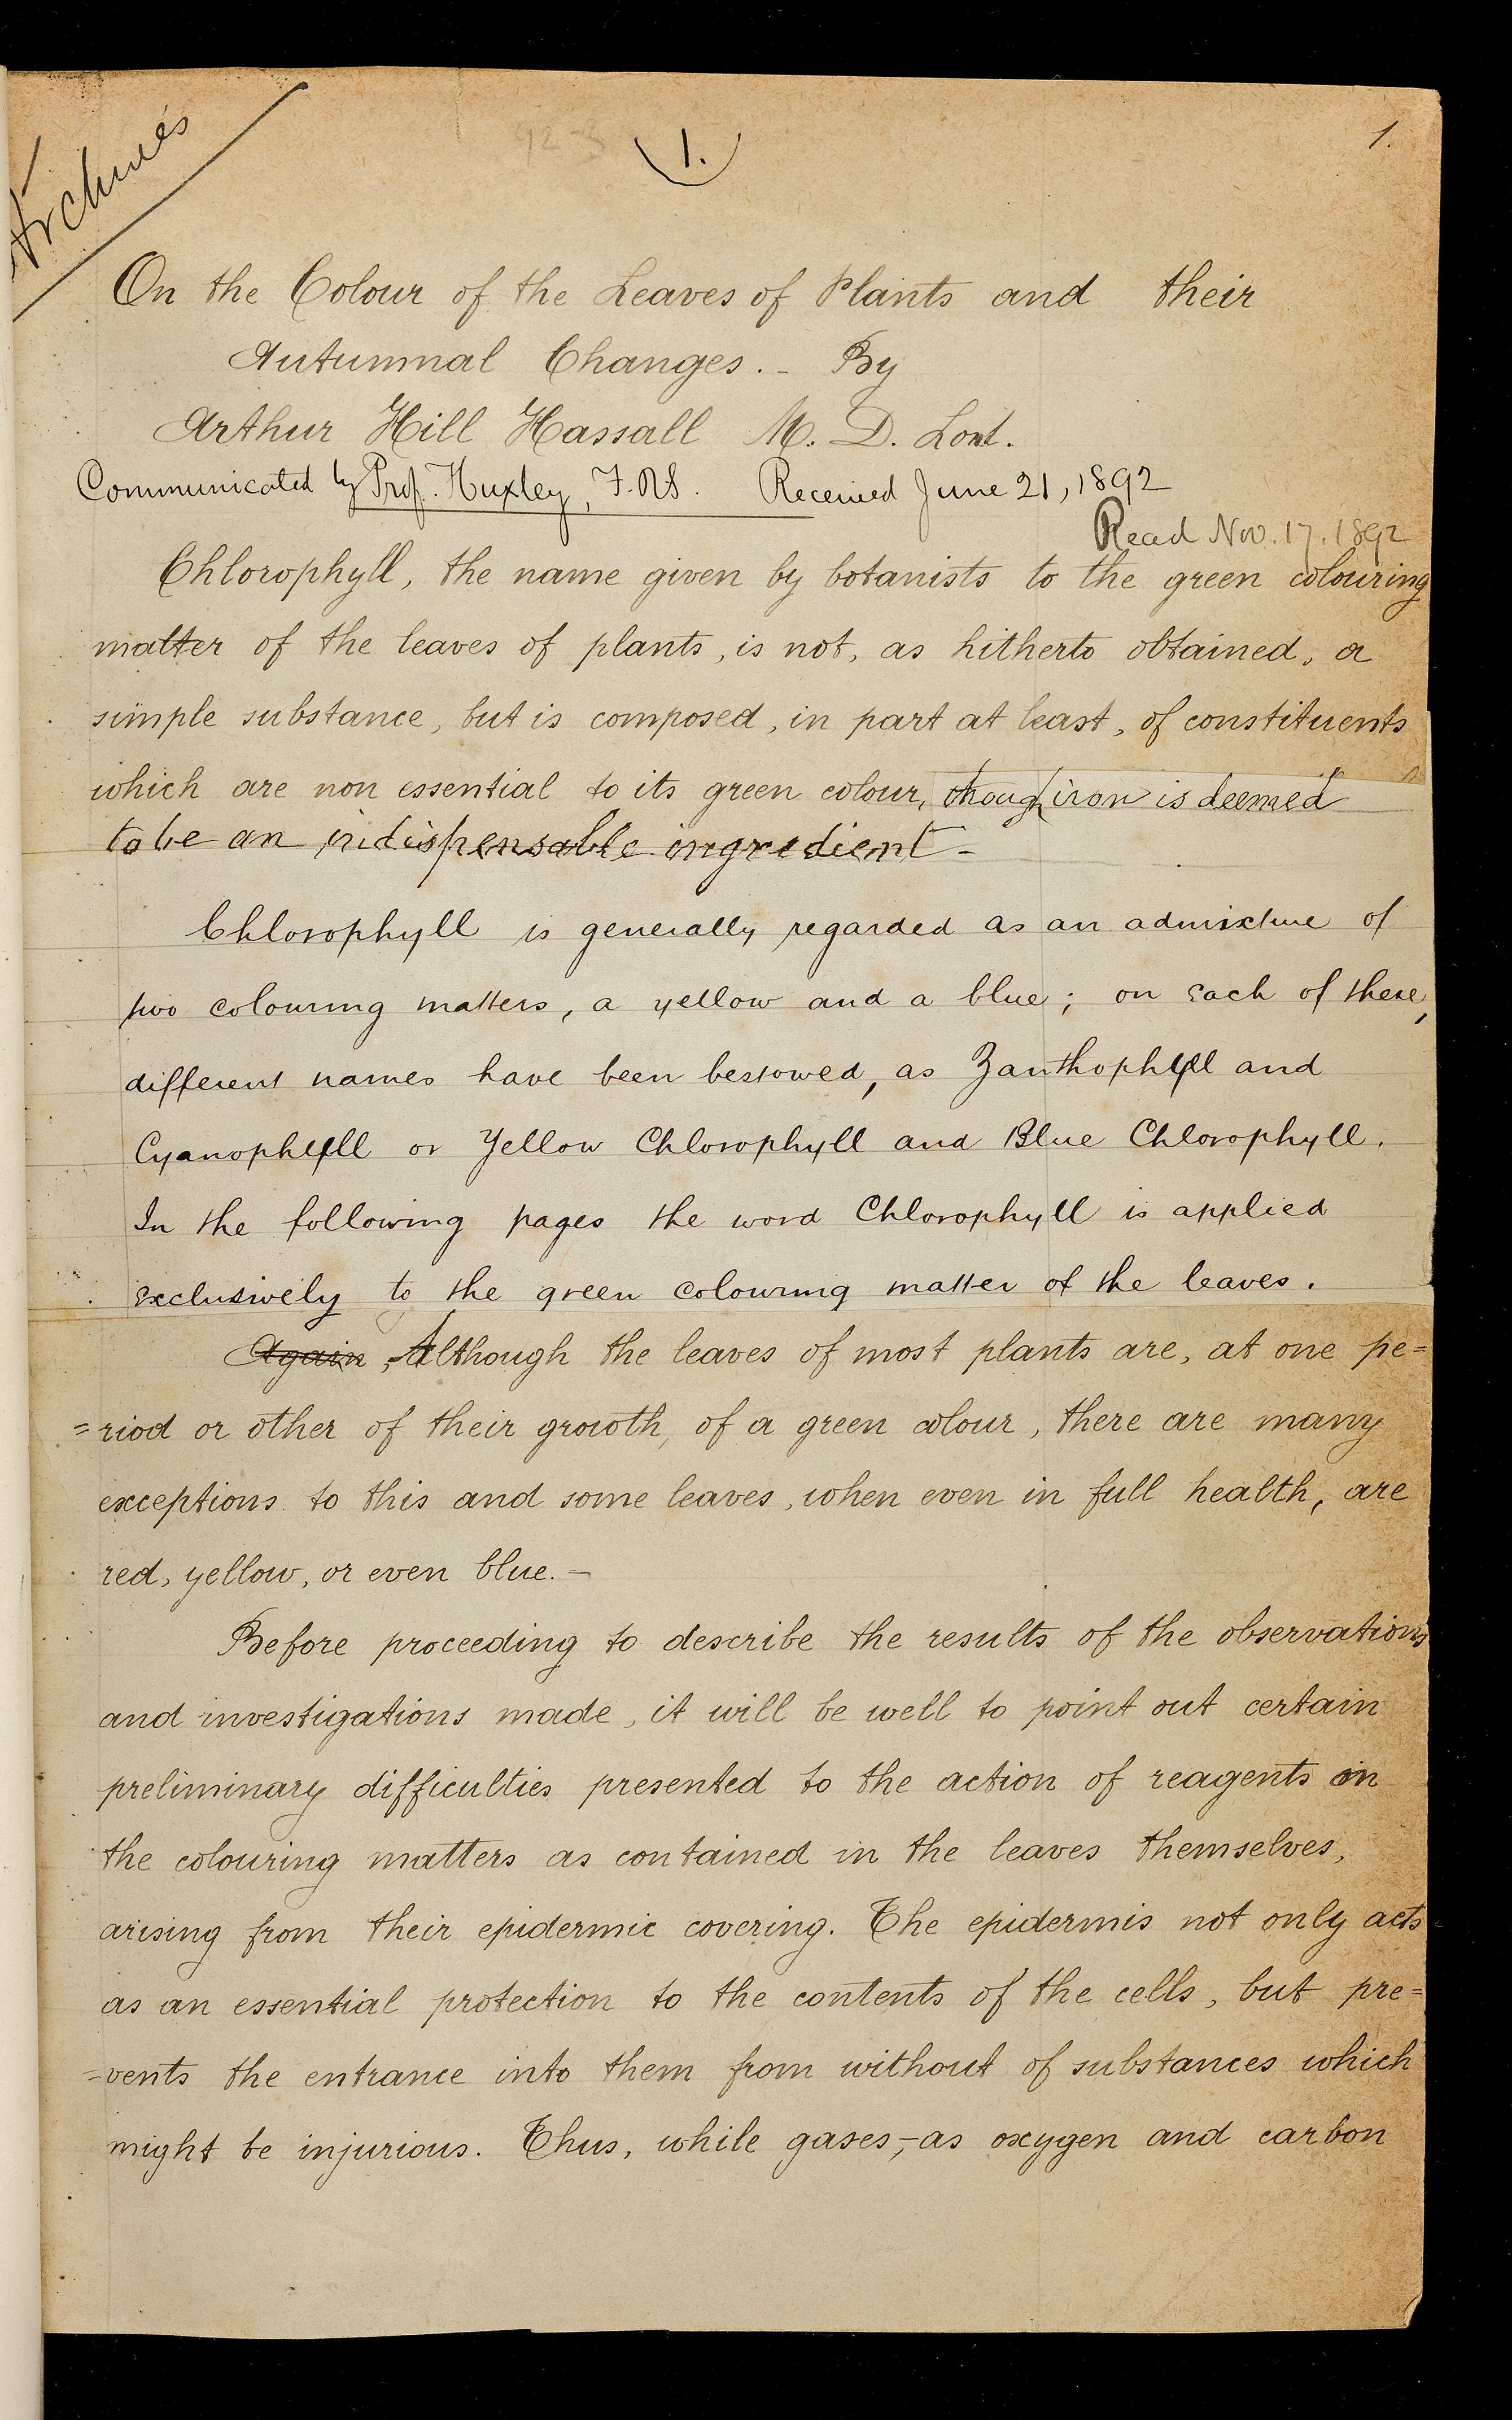 Archives
1.
1.
On the Colour of the Leaves of Plants and their
Autumnal Changes.- By
Arthur Hill Hassall M. D. Lond.
Communicated by Prof. Huxley, F.R.S. Received June 21, 1892
Read Nov. 17. 1892
Chlorophyll, the name given by botanists to the green colouring
matter of the leaves of plants, is not, as hitherto obtained, a
simple substance, but is composed, in part at least, of constituents
which are non essential to its green colour, though iron is deemed
to be an indispensable ingredient-
Chlorophyll is generally regarded as an admixture of
two colouring matters, a yellow and a blue; on each of these,
different names have been bestowed, as Zanthophyll and
Cyanophyll or Yellow Chlorophyll and Blue Chlorophyll.
In the following pages the word Chlorophyll is applied
exclusively to the green colouring matter of the leaves.
Again, Although the leaves of most plants are, at one pe=
=riod or other of their growth, of a green colour, there are many
exceptions to this and some leaves, when even in full health, are
red, yellow, or even blue.-
Before proceeding to describe the results of the observations
and investigations made, it will be well to point out certain
preliminary difficulties presented to the action of reagents on
the colouring matters as contained in the leaves themselves,
arising from their epidermic covering. The epidermis not only acts
as an essential protection to the contents of the cells, but pre=
=vents the entrance into them from without of substances which
might be injurious. Thus, while gases,-as oxygen and carbon